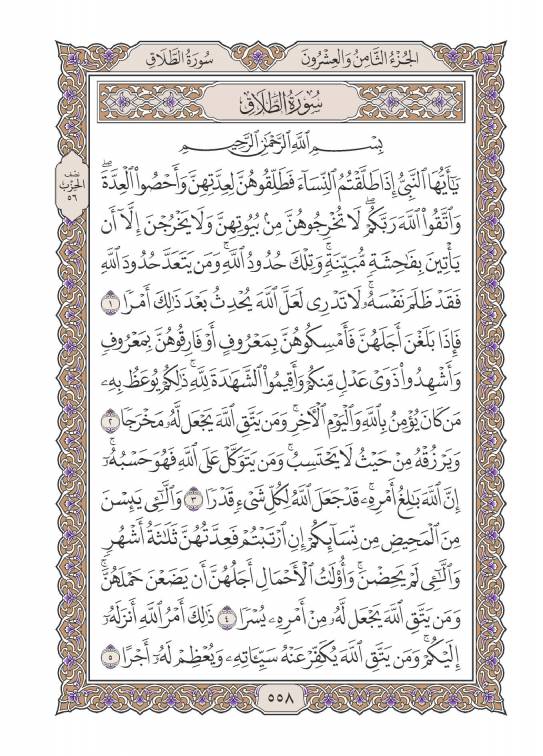 الجُزْءُ الثَّامِنُ وَالعِشْرُونَ
سُورَةُ الطَّلَاقِ
سُورَةُ الطَّلَاقِ
بِسْمِ ٱللَّهِ ٱلرَّحْمَٰنِ ٱلرَّحِيمِ
نصف
الحزب
٥٦
يَٰٓأَيُّهَا ٱلنَّبِىُّ إِذَا طَلَّقْتُمُ ٱلنِّسَآءَ فَطَلِّقُوهُنَّ لِعِدَّتِهِنَّ وَأَحْصُوا۟ ٱلْعِدَّةَۖ
وَٱتَّقُوا۟ ٱللَّهَ رَبَّكُمْۖ لَا تُخْرِجُوهُنَّ مِنۢ بُيُوتِهِنَّ وَلَا يَخْرُجْنَ إِلَّآ أَن
يَأْتِينَ بِفَٰحِشَةٍ مُّبَيِّنَةٍۚ وَتِلْكَ حُدُودُ ٱللَّهِۚ وَمَن يَتَعَدَّ حُدُودَ ٱللَّهِ
فَقَدْ ظَلَمَ نَفْسَهُۥۚ لَا تَدْرِى لَعَلَّ ٱللَّهَ يُحْدِثُ بَعْدَ ذَٰلِكَ أَمْرًا ١
فَإِذَا بَلَغْنَ أَجَلَهُنَّ فَأَمْسِكُوهُنَّ بِمَعْرُوفٍ أَوْ فَارِقُوهُنَّ بِمَعْرُوفٍ
وَأَشْهِدُوا۟ ذَوَىْ عَدْلٍ مِّنكُمْ وَأَقِيمُوا۟ ٱلشَّهَٰدَةَ لِلَّهِۚ ذَٰلِكُمْ يُوعَظُ بِهِۦ
مَن كَانَ يُؤْمِنُ بِٱللَّهِ وَٱلْيَوْمِ ٱلْءَاخِرِۚ وَمَن يَتَّقِ ٱللَّهَ يَجْعَل لَّهُۥ مَخْرَجًا ٢
وَيَرْزُقْهُ مِنْ حَيْثُ لَا يَحْتَسِبُۚ وَمَن يَتَوَكَّلْ عَلَى ٱللَّهِ فَهُوَ حَسْبُهُۥٓۚ
إِنَّ ٱللَّهَ بَٰلِغُ أَمْرِهِۦۚ قَدْ جَعَلَ ٱللَّهُ لِكُلِّ شَىْءٍ قَدْرًا ٣ وَٱلَّٰٓـِٔى يَئِسْنَ
مِنَ ٱلْمَحِيضِ مِن نِّسَآئِكُمْ إِنِ ٱرْتَبْتُمْ فَعِدَّتُهُنَّ ثَلَٰثَةُ أَشْهُرٍ
وَٱلَّٰٓـِٔى لَمْ يَحِضْنَۚ وَأُو۟لَٰتُ ٱلْأَحْمَالِ أَجَلُهُنَّ أَن يَضَعْنَ حَمْلَهُنَّۚ
وَمَن يَتَّقِ ٱللَّهَ يَجْعَل لَّهُۥ مِنْ أَمْرِهِۦ يُسْرًا ٤ ذَٰلِكَ أَمْرُ ٱللَّهِ أَنزَلَهُۥٓ
إِلَيْكُمْۚ وَمَن يَتَّقِ ٱللَّهَ يُكَفِّرْ عَنْهُ سَيِّـَٔاتِهِۦ وَيُعْظِمْ لَهُۥٓ أَجْرًا ٥
٥٥٨